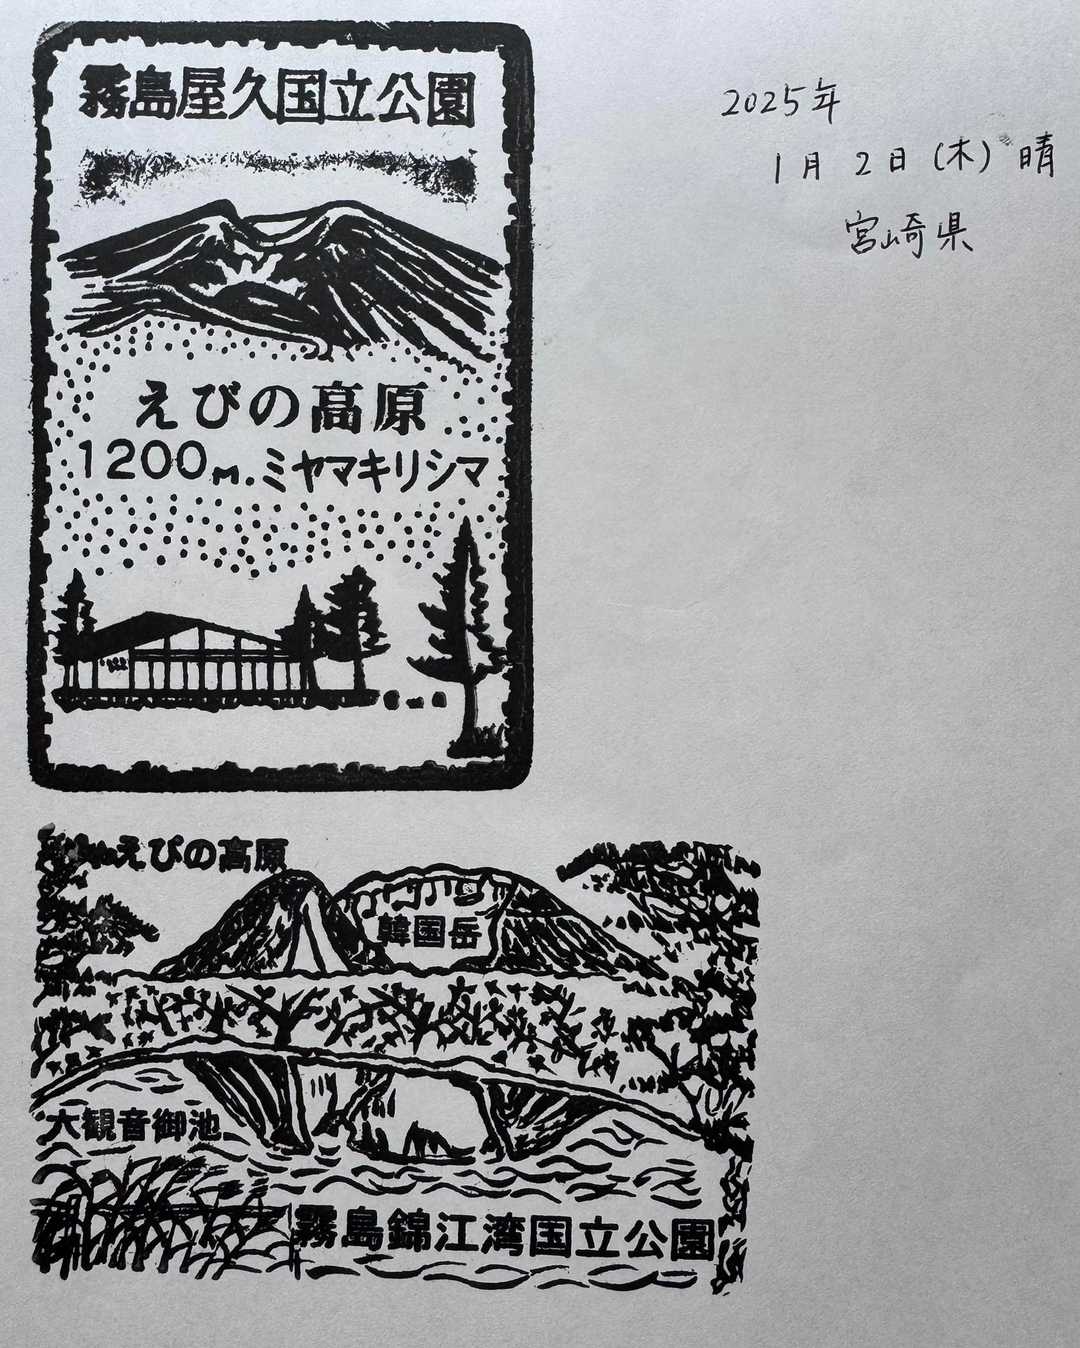 霧島屋久国立公園
えびの高原
1200M.ミヤマキリシマ
2025年
1月2日(木)晴
宮崎県
えびの高原
韓国岳
六観音御池
霧島錦江湾国立公園